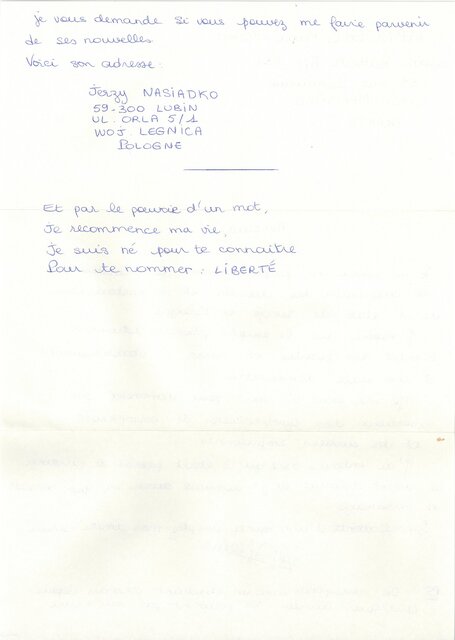 je vous demande si vous pouvez me faire parvenir
de ses nouvelles
Voici son adresse :
Jerzy NASIADKO
59-300 LUBIN
UL. ORLA 5/1
WOJ. LEGNICA
POLOGNE
Et par le pouvoir d'un mot,
Je recommence ma vie,
Je suis né pour te connaître
Pour te nommer : LIBERTÉ